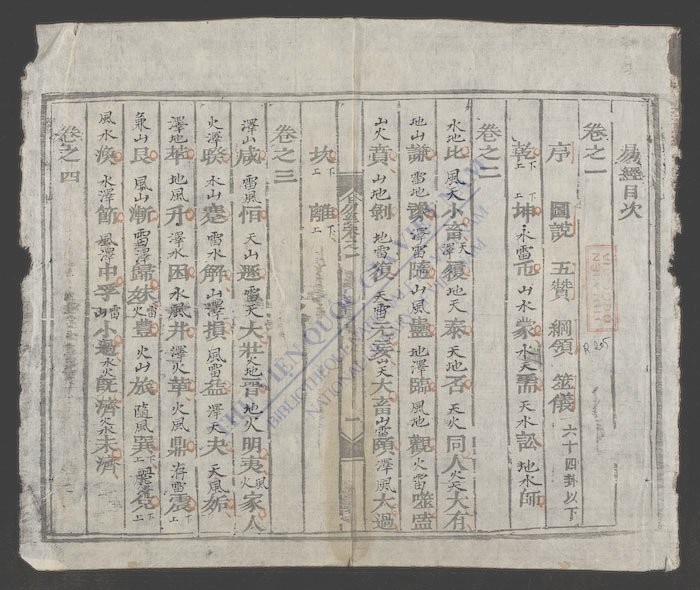 易經目次
卷之一
序 圖說 五贊 綱領 筮儀 六十四卦以下
乾上下 坤上下 水雷屯 山水蒙 水天需 天水訟 地水師
卷之二
水地比 風天小畜 天澤履 地天泰 天地否 天火同人 火天大有
地山謙 雷地豫 澤雷隨 山風蠱 地澤臨 風地觀 火雷噬嗑
山火賁 山地剝 地雷復 天雷无妄 山天大畜 山雷頤 澤風大過
易經卷之一 一
坎上下 離上下
卷之三
澤山咸 雷風恒 天山遯 雷天大壯 火地晉 地火明夷 風火家人
火澤睽 水山蹇 雷水解 山澤損 風雷益 澤天夬 天風姤
澤地萃 地風升 澤水困 水風井 澤火革 火風鼎 洊雷震上下
兼山艮上下 風山漸 雷澤歸妹 雷火豊 火山旅 隨風巽上下 兌上下
風水渙 水澤節 風澤中孚 雷山小過 水火既濟 火水未濟
卷之四
THƯ VIỆN QUỐC GIA VIỆT NAM